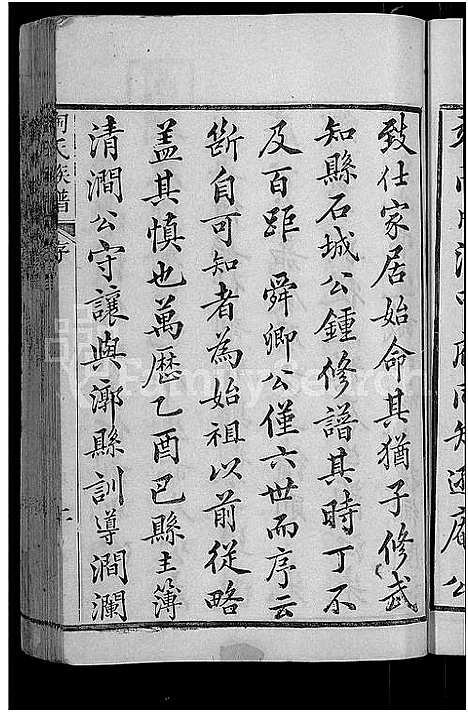 致仕家居始命其猶子修武
知縣石城公鍾修譜其時丁不
及百距 舜卿公僅六世而序云
斷自可知者為始祖以前從略
蓋其慎也萬歷乙酉巳縣主簿
清澗公守讓與漷縣訓導澗瀾
氏族譜
序